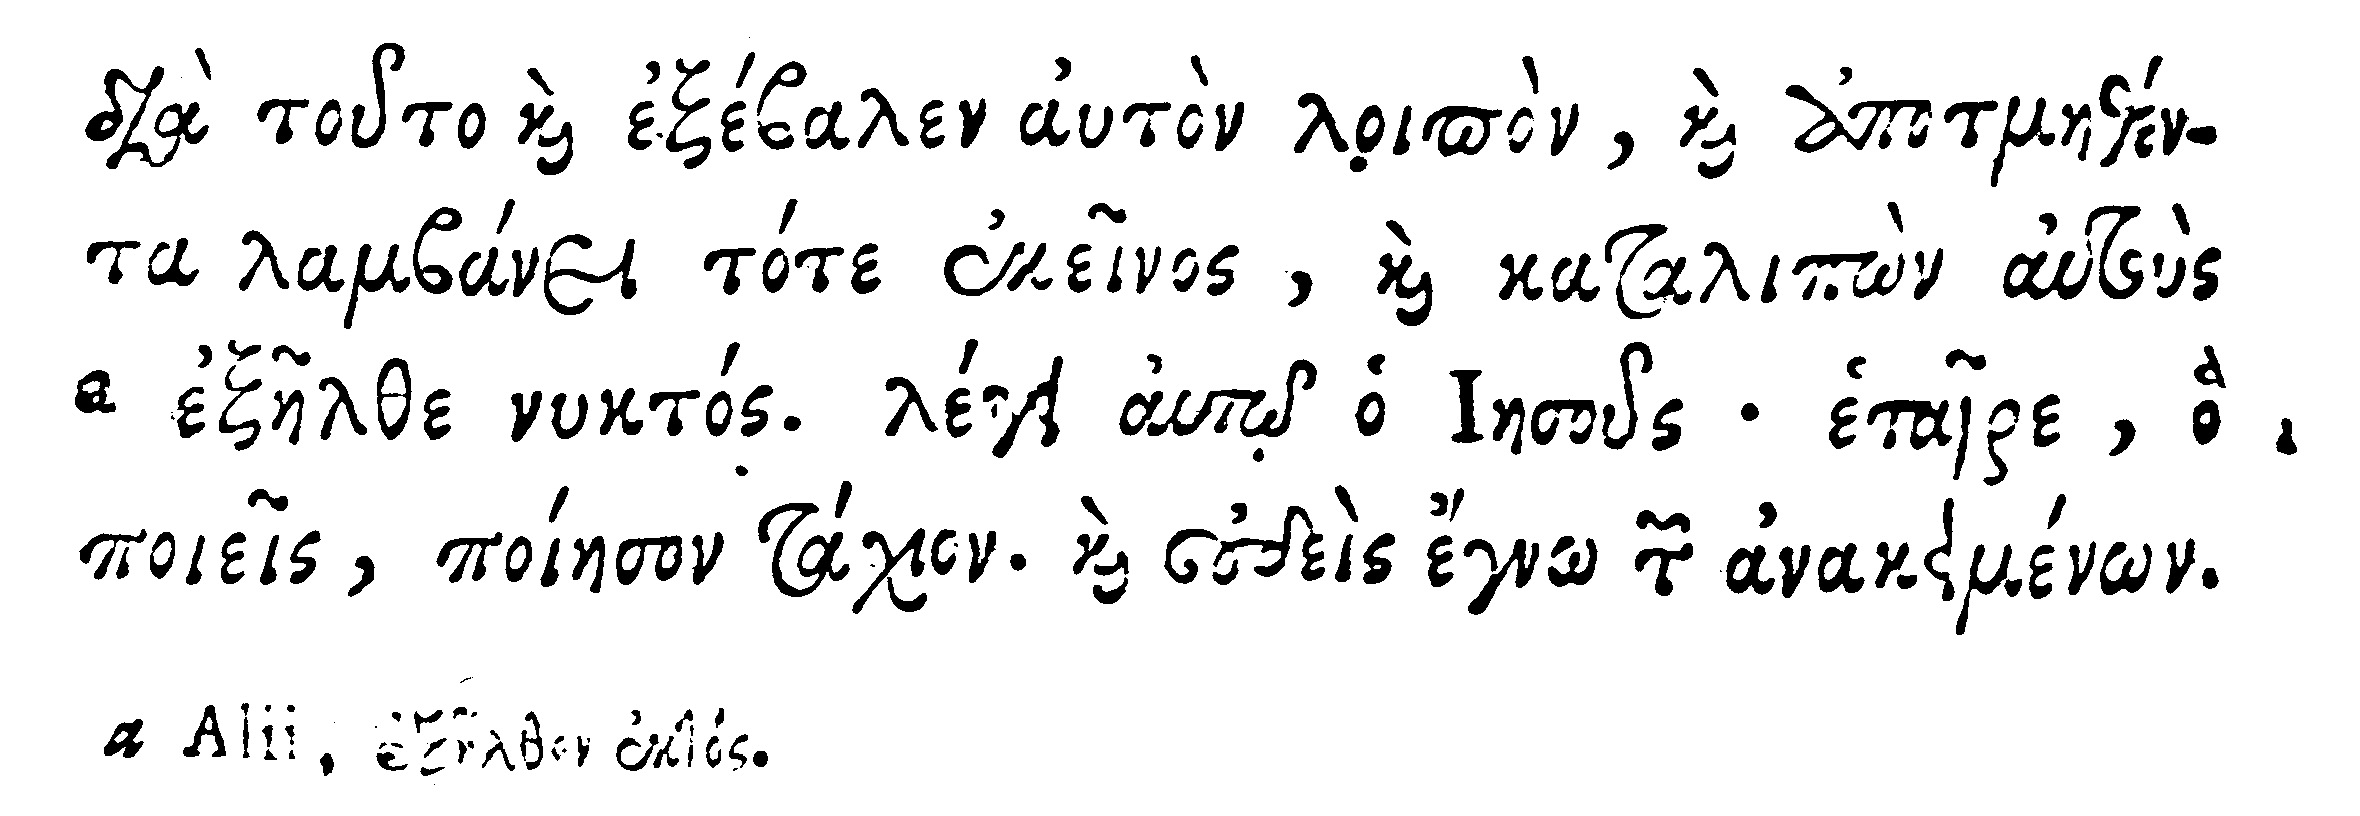 διὰ τοῦτο καὶ ἐξέβαλεν αὐτὸν λοιπὸν, καὶ ἀποτμηθέν-
τα λαμβάνει τότε ἐκεῖνος, καὶ καταλιπὼν αὐτοὺς
a ἐξῆλθε νυκτός. λέγει αὐτῷ ὁ Ἰησοῦς · ἑταῖρε, ὃ
ποιεῖς, ποίησον τάχιον. καὶ οὐδεὶς ἔγνω τῶν ἀνακειμένων.
a Alii, ἐξῆλθεν ἐκτός.